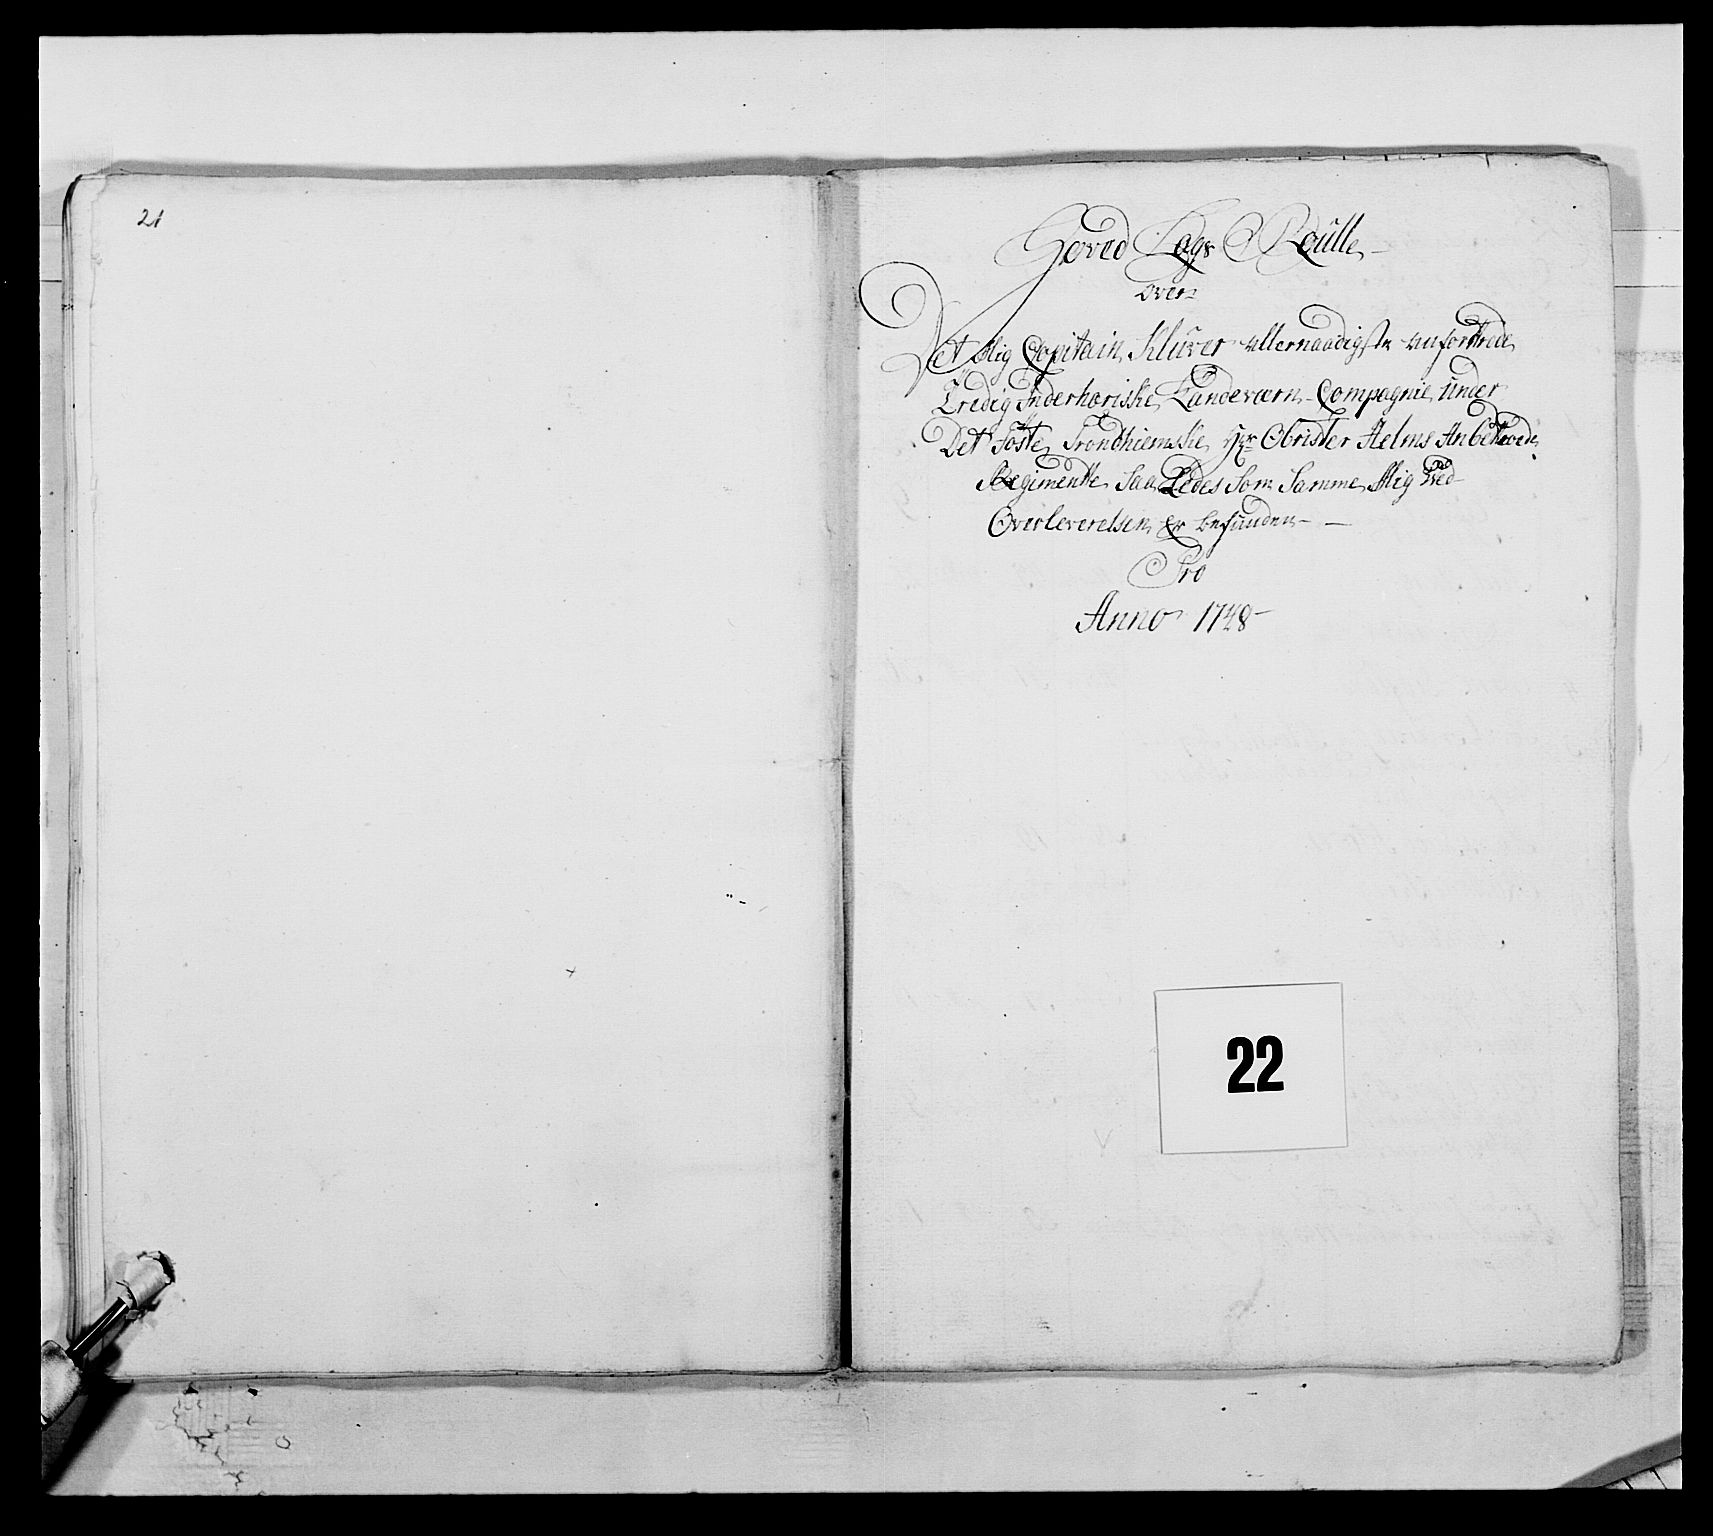 21
Hoved Lægs Roulle
over
Det Mig Capitain Klüver allernaadigste anfortroede
Indherioriske Landeværn Compagnie under
Det første Trondhiemske Hr: Obrister Helms Anbetroede
Regimente Saa Ledes Som Samme Mig ved
Overleverelsen er befunden
Pro
Anno 1748
22